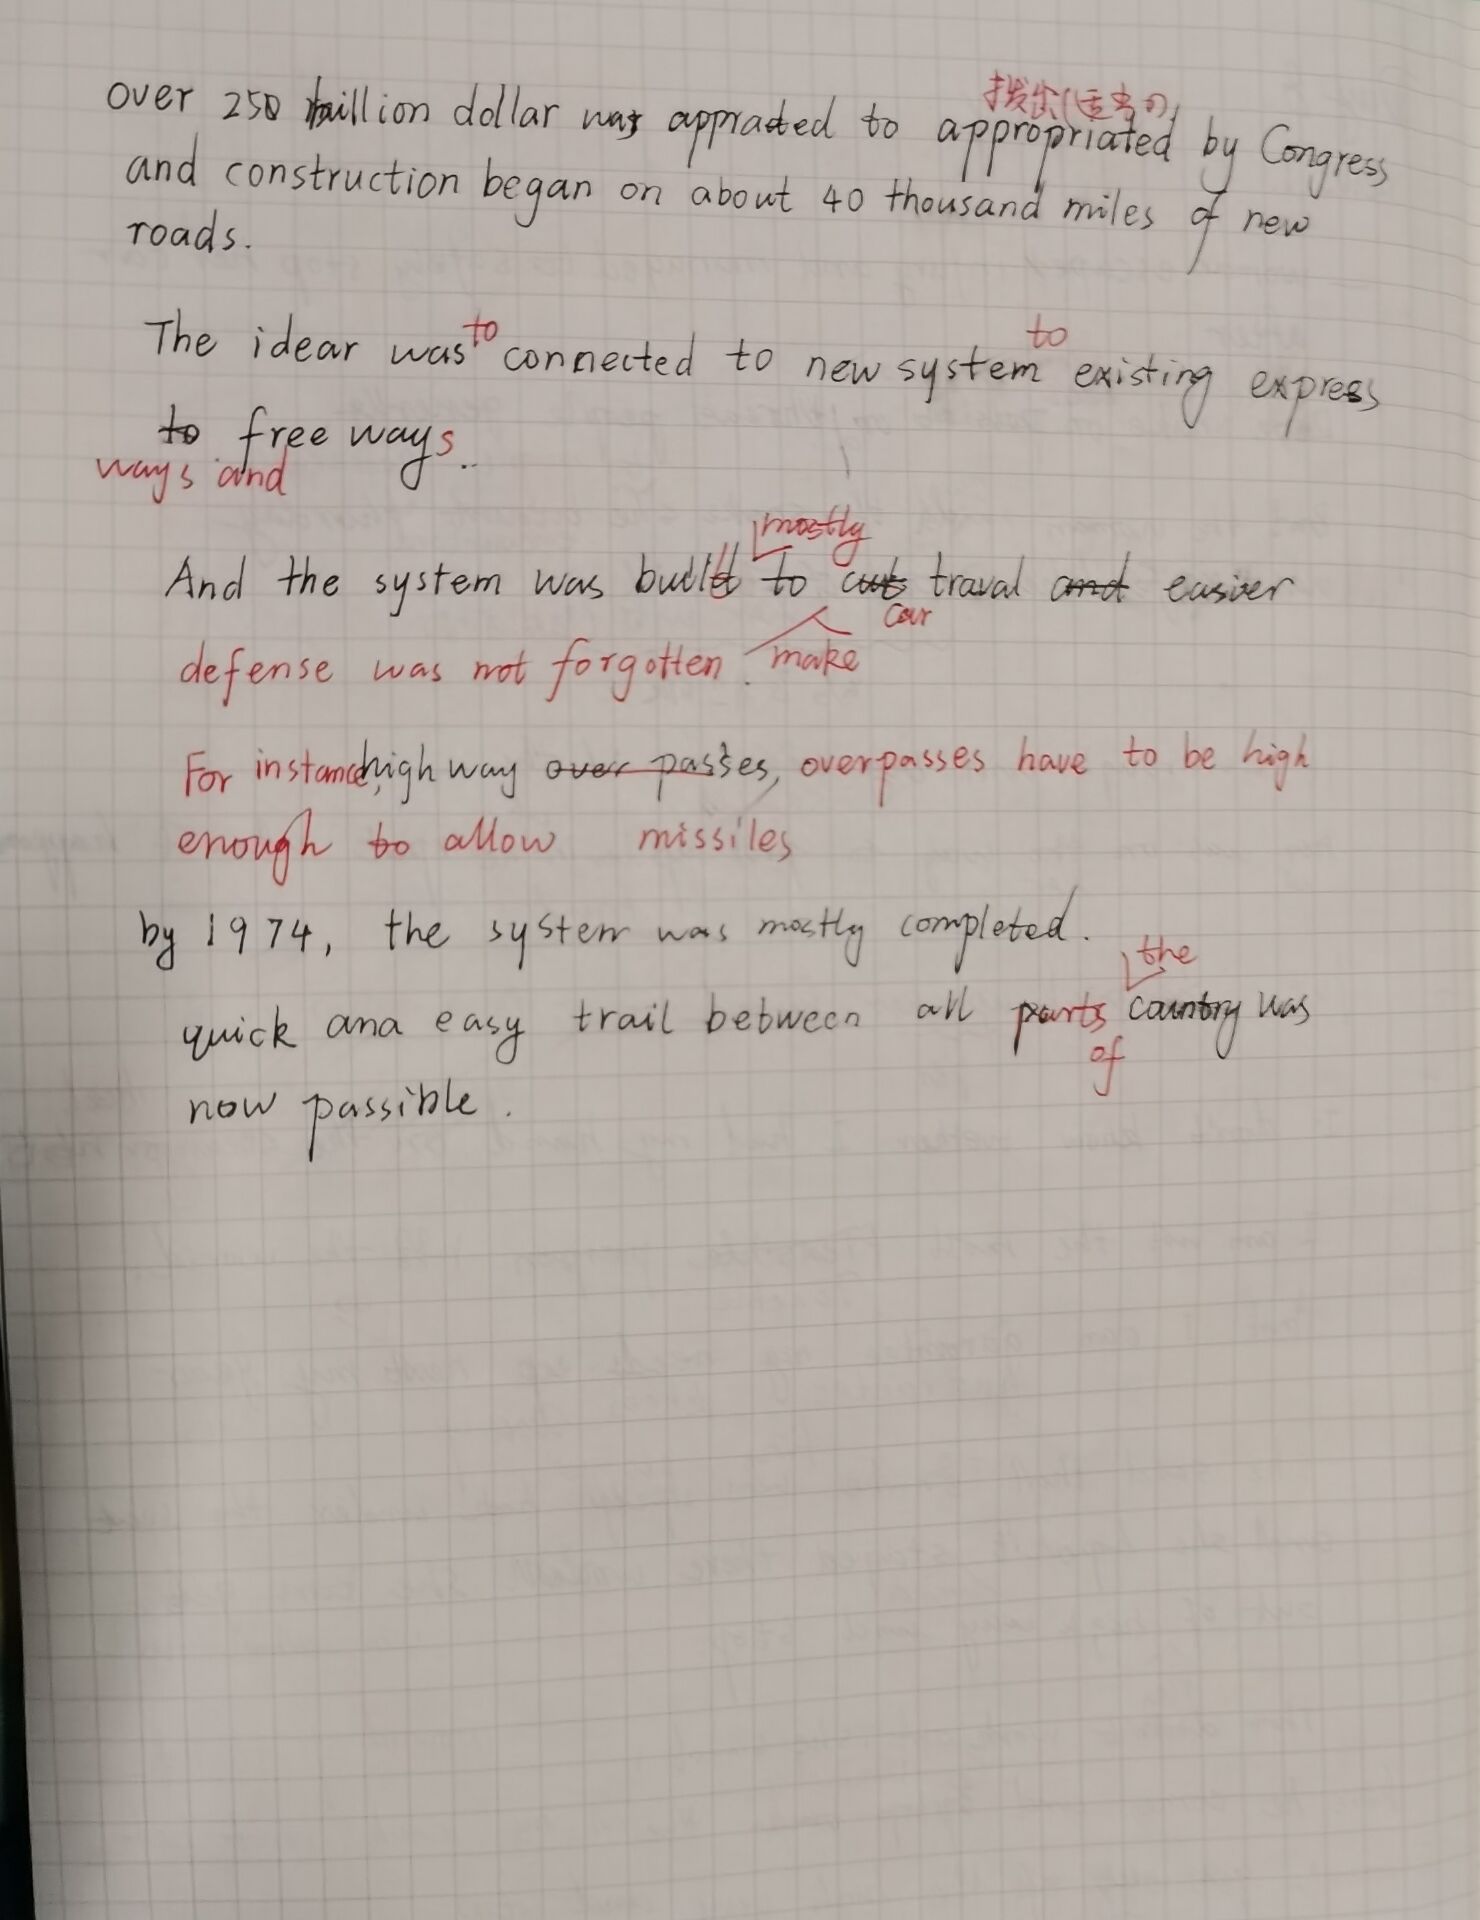 over 250 billion dollar was appraoted to appropriated by Congress
and construction began on about 40 thousand miles of new
roads.
to to
The idear was connected to new system existing express
to free ways.
ways and
mostly
And the system was build to cuts traval and easiver
car
defense was not forgotten. make
For instance, high way over passes, overpasses have to be high
enough to allow missiles
by 1974, the system was mostly completed.
the
quick ana easy trail between all parts country was
of
now passible.